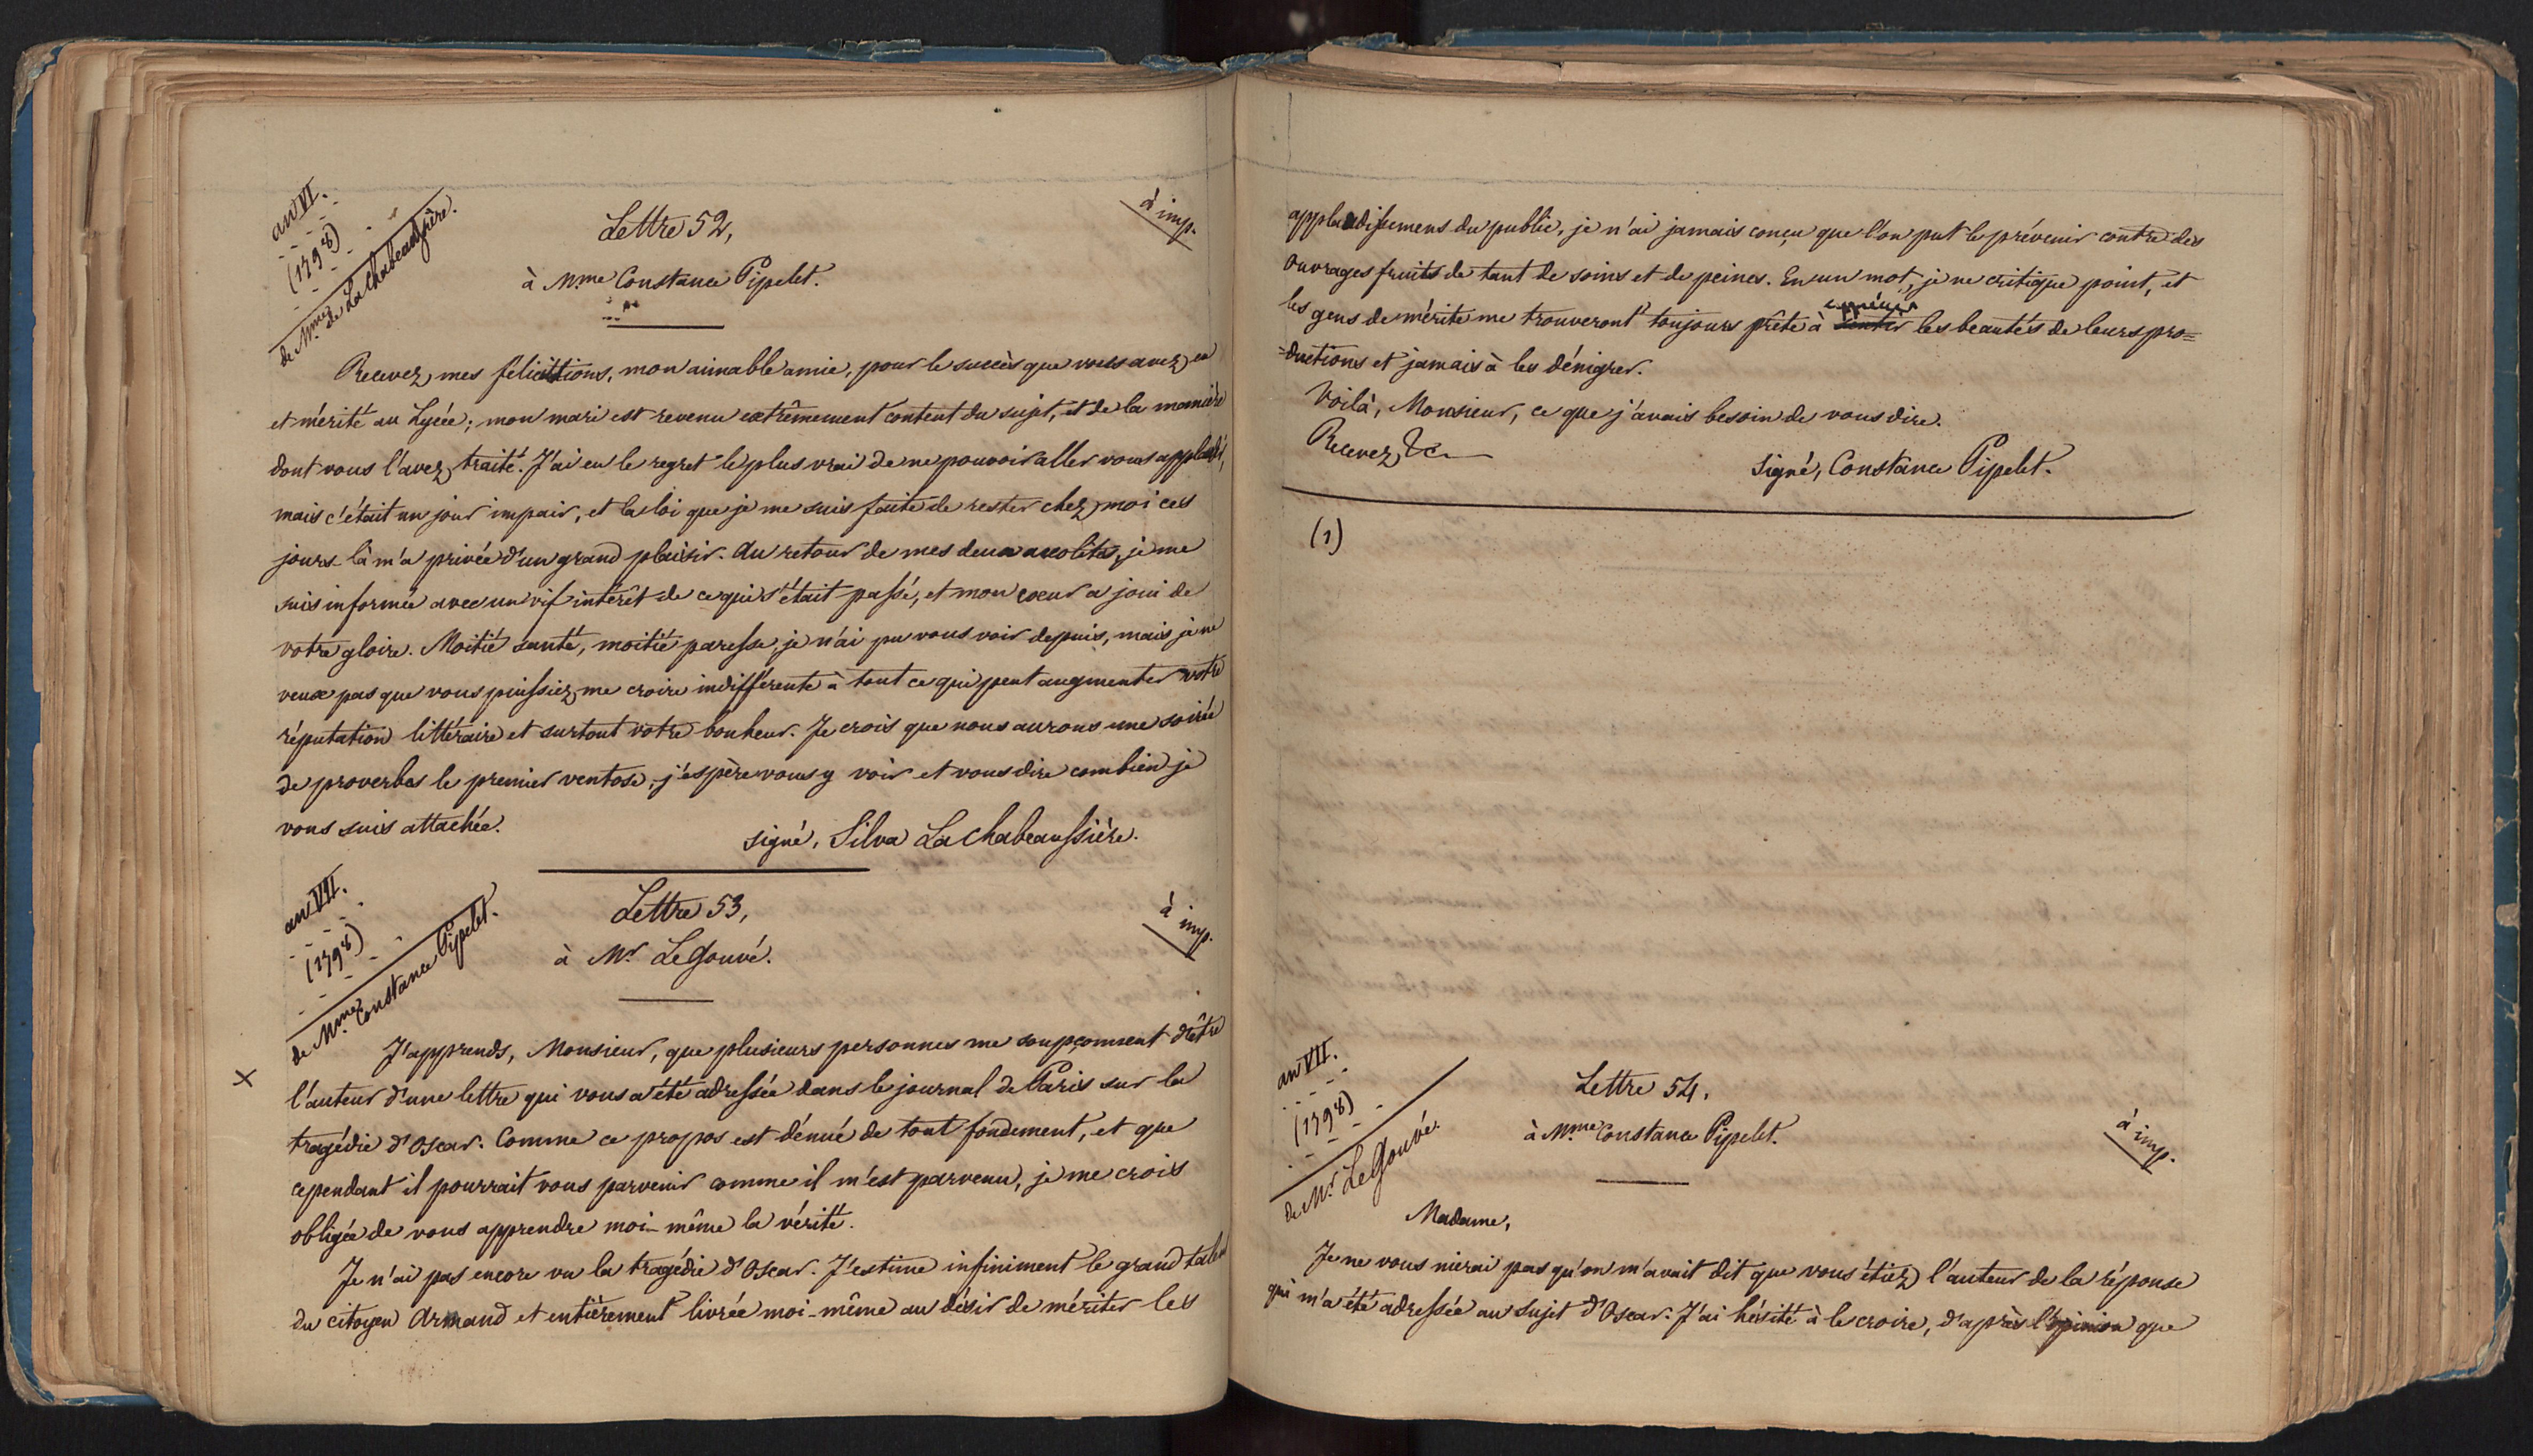 an VI.
(1798)
de Mme de La Chabeaussière.
à imp.
Lettre 52,
à Mme Constance Pipelet.
Recevez, mes félicitations, mon aimable amie, pour le succès que vous avez eu
et mérité au Lycée; mon mari est revenu extrêmement content du sujet, et de la manière
dont vous l'avez traité. J'ai eu le regret le plus vrai de ne pouvoir aller vous applaudir,
mais c'était un jour impair, et la loi que je me suis faite de rester chez moi ces
jours-là m'a privée d'un grand plaisir. Au retour de mes deux acolites, je me
suis informée avec un vif intérêt de ce qui s'était passé, et mon coeur a joui de
votre gloire. Moitié santé, moitié paresse, je n'ai pu vous voir depuis, mais je ne
veux pas que vous puissiez me croire indifférente à tout ce qui peut augmenter votre
réputation littéraire et surtout votre bonheur. Je crois que nous aurons une soirée
de proverbes le premier ventose, j'espère vous y voir et vous dire combien je
vous suis attachée.
signé, Silva La Chabeaussière.
an VII.
(1798)
de Mme Constance Pipelet.
à imp.
Lettre 53,
à Mr LeGouvé.
J'apprends, Monsieur, que plusieurs personnes me soupçonnent d'être
X l'auteur d'une lettre qui vous a été adressée dans le journal de Paris sur la
tragédie d'Oscar. Comme ce propos est dénué de tout fondement, et que
cependant il pourrait vous parvenir comme il m'est parvenu, je me crois
obligée de vous apprendre moi-même la vérité.
Je n'ai pas encore vu la tragédie d'Oscar. J'estime infiniment le grand talent
du citoyen Armand et entièrement livrée moi-même au désir de mériter les
applaudissemens du public, je n'ai jamais conçu que l'on put le prévenir contre des
ouvrages fruits de tant de soins et de peines. En un mot, je ne critique point, et
apprécier
les gens de mérite me trouveront toujours prête à sentir les beautés de leurs pro=
=ductions et jamais à les dénigrer.
Voilà, Monsieur, ce que j'avais besoin de vous dire.
Recevez, &c
signé, Constance Pipelet.
(1)
an VII.
(1798)
de Mr LeGouvé.
à imp.
Lettre 54.
à Mme Constance Pipelet.
Madame,
Je ne vous nierai pas qu'on m'avait dit que vous étiez l'auteur de la réponse
qui m'a été adressée au sujet d'Oscar. J'ai hésité à le croire, d'après l'opinion que